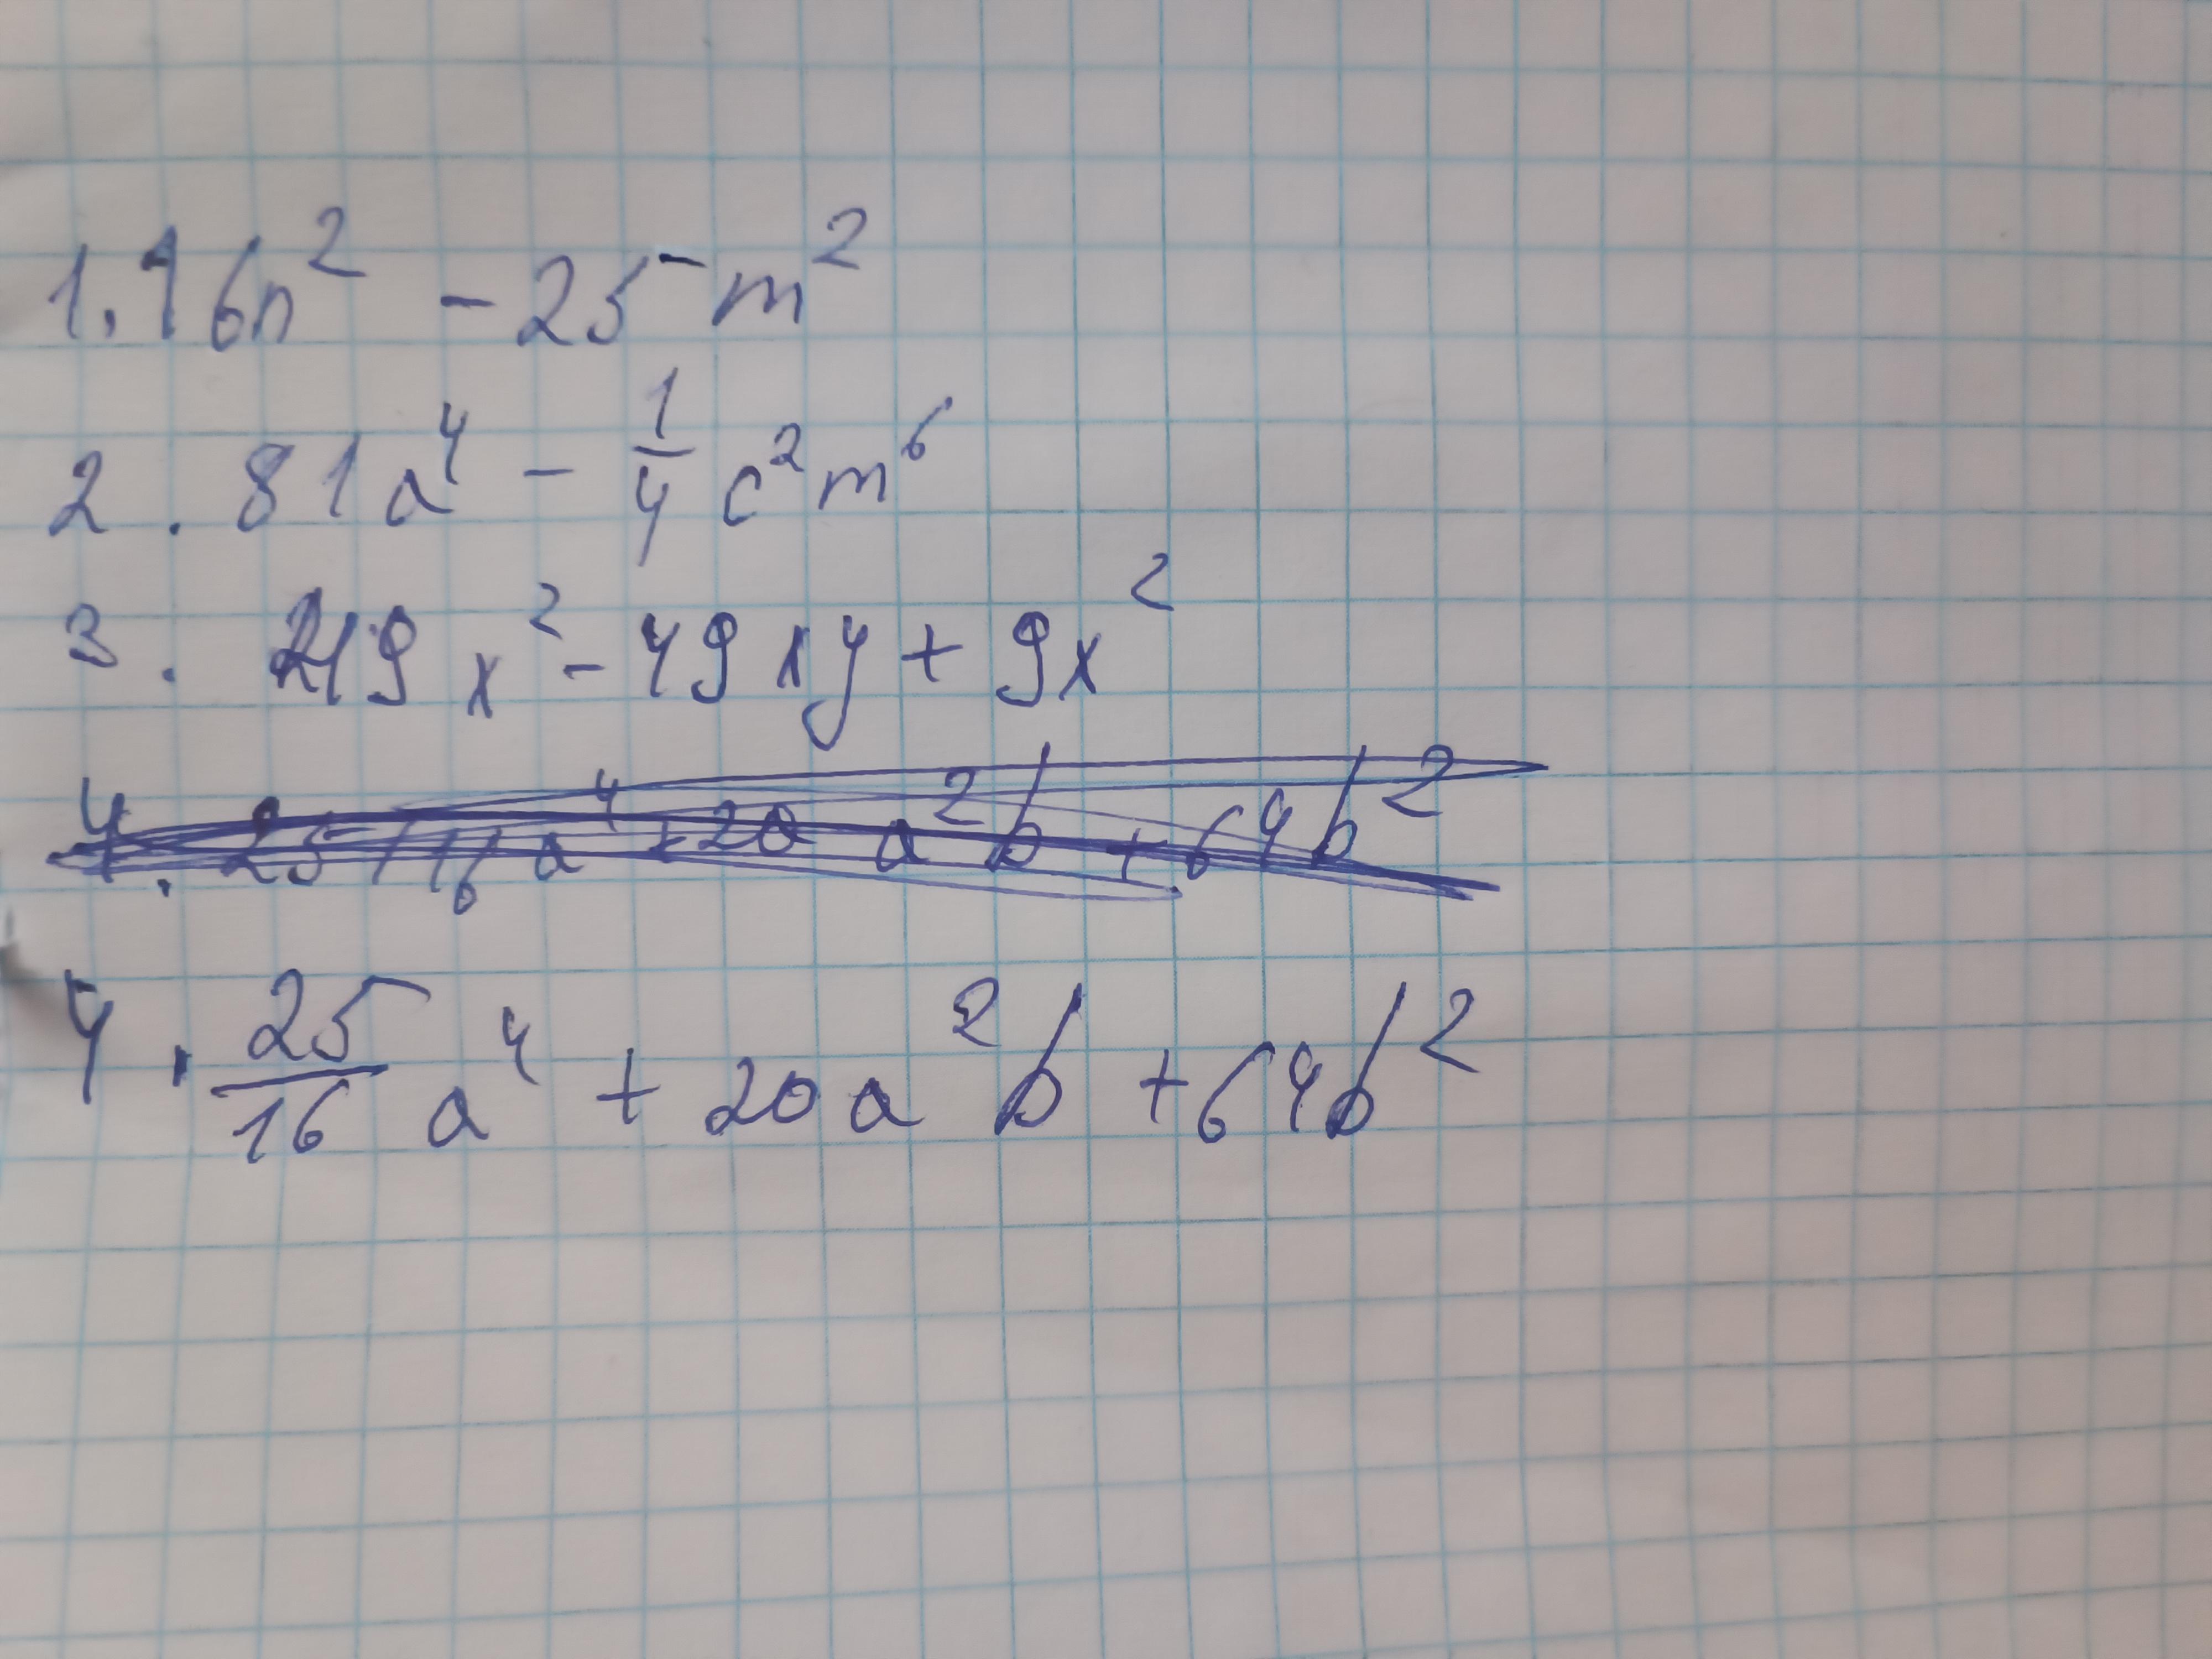 1. 16n² - 25m²
2. 81a⁴ - 1/4 c²m⁶
3. 49x² - 49xy + 9x²
4. 25/16 a⁴ + 20a²b + 64b²
4. 25/16 a⁴ + 20a²b + 64b²